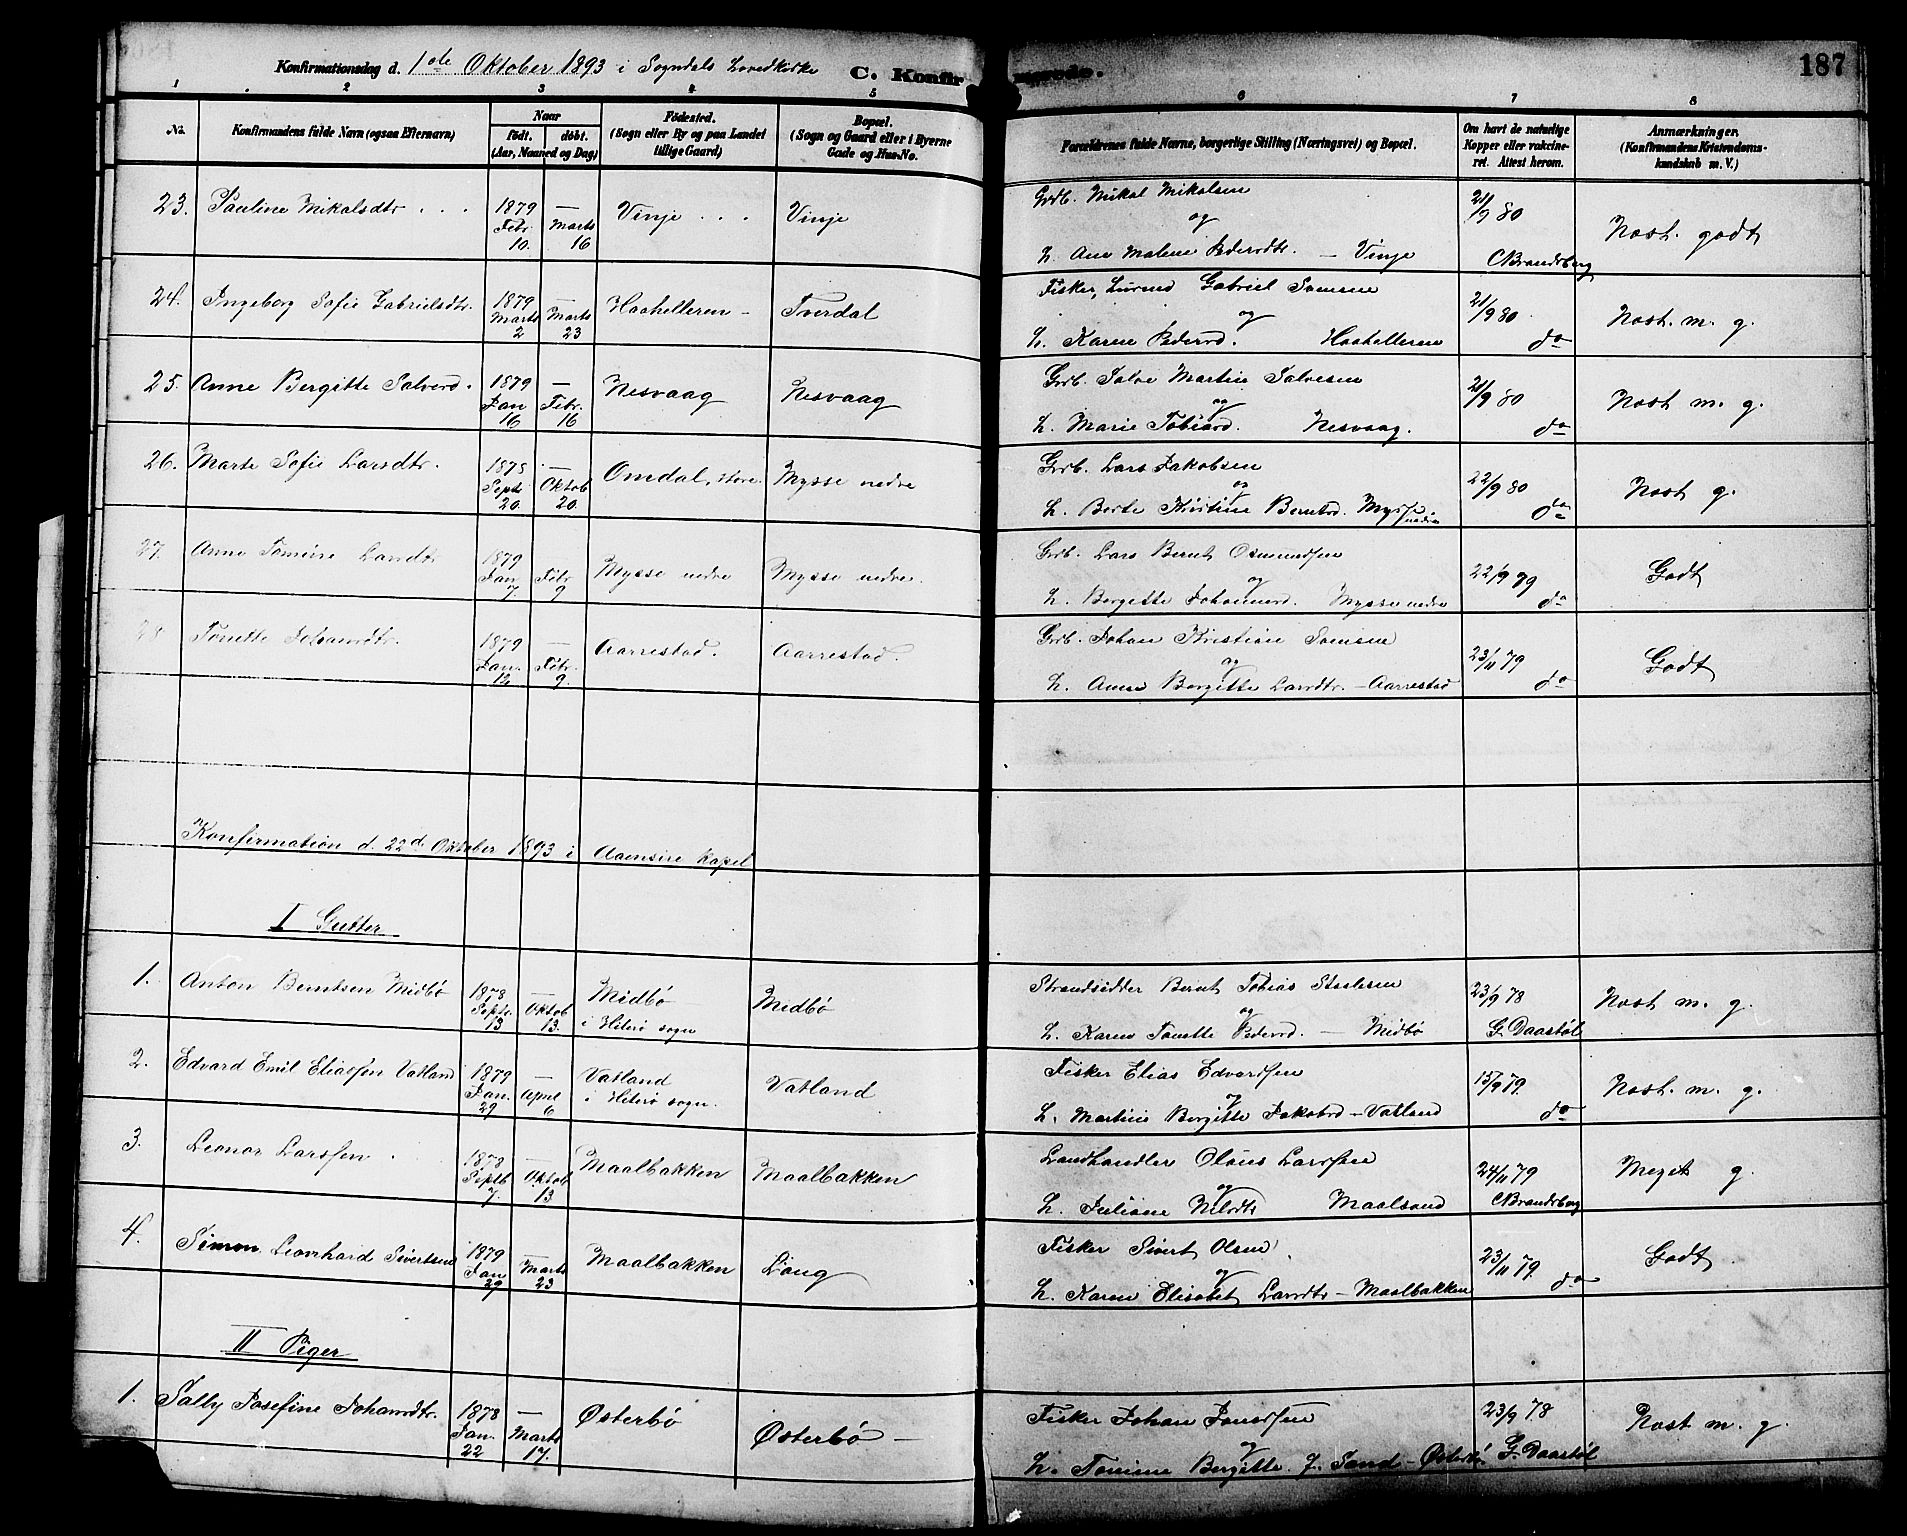 187
Konfirmationsdag d. 1ste Oktober 1893 i Sogndals Hovedkirke C. Konfirmerede.
1 2 3 4 5 6 7 8
No. Konfirmandens fulde Navn (ogsaa Efternavn) Naar født. døbt. (Aar, Maaned og Dag) Fødested. (Sogn eller By og paa Landet tillige Gaard) Bopæl. (Sogn og Gaard eller i Byerne Gade og Hus-No. Forældrenes fulde Navne, borgerlige Stilling (Næringsvei) og Bopæl. Om havt de naturlige Kopper eller vaccineret. Attest herom. Anmærkninger. (Konfirmandens Kristendomskundskab m. V.)
23. Pauline Mikalsdtr. 1879 Febr. 10. — Marts 16 Vinje Vinje Grdb. Mikal Mikalsen og H. Ane Malene Pedersdtr. — Vinje 21/9 80 CBrandsberg Nost. godt
24. Ingeborg Sofie Gabrielsdtr. 1879 Marts 2 — Marts 23 Haahelleren — Tverdal Fisker, Gabriel Samsen og H. Karen Pedersd. Haahelleren 21/9 80 do Nost. m. g.
25. Anne Bergitte Salvesd. 1879 Jan 16 — Febr. 16 Nesvaag Nesvaag Grdb. Salve Martin Salvesen og H. Marie Tobiasd. Nesvaag. 21/9 80 do Nost m. g.
26. Marte Sofie Larsdtr. 1878 Septr 20. — Oktob 20. Omdal, store. Mysse nedre Grdb. Lars Jakobsen og H. Berte Kristine Berntsd. Mysse nedre 22/9 80 do Nost g.
27. Anne Tomine Larsdtr 1879 Jan 7 Febr 9 Mysse nedre Mysse nedre. Grdb. Lars Bernt Osmundsen og H. Bergitte Johannesd. Mysse nedre 22/9 79 do Godt
28 Tonette Johansdtr. 1879 Jan. 12 — Febr. 9. Aarrestad. Aarrestad. Grdb. Johan Kristian Samsen og H. Anne Bergitte Larsdtr. — Aarrestad 23/11 79 do Godt
Konfirmation d. 22d Oktober 1893 i Aaensire kapel
I Gutter
1. Anton Berntsen Midbø 1878 Septr. 13 — Oktob 13. Midbø i Hiterø sogn Midbø Strandsidder Bernt Tobias Staalesen og H. Karen Tonette Pedersd. — Midbø 23/9 78 G. Daastøl Nost m. g.
2. Edvard Emil Eliassen Vatland 1879 Jan. 29 — April 6 Vatland i Hiterø sogn. Vatland Fisker Elias Edvardsen og H. Martine Bergitte Jakobsd — Vatland 15/9 79. do Nost. m. g.
3. Leonor Larssen 1878 Septb 7. — Oktob 13. Maalbakken Maalbakken Landhandler Olaus Larssen og H. Juliane Nilsdtr Maalsand 24/11 79 CBrandsberg Meget g.
4. Simon Leonhard Sivertsen 1879 Jan 29 — Marts 23 Maalbakken Fisker Sivert Olsen og H. Karen Elisabet Larsdtr — Maalbakken 23/11 79. do Godt
II Piger
1. Sally Josefine Johansdtr. 1878 Jan. 22 — Marts 17. Østerbø Østerbø — Fisker Johan Jonassen og H. Tomine Bergitte f. Sand — Østerbø 23/9 78 G. Daastøl Nost m. g.